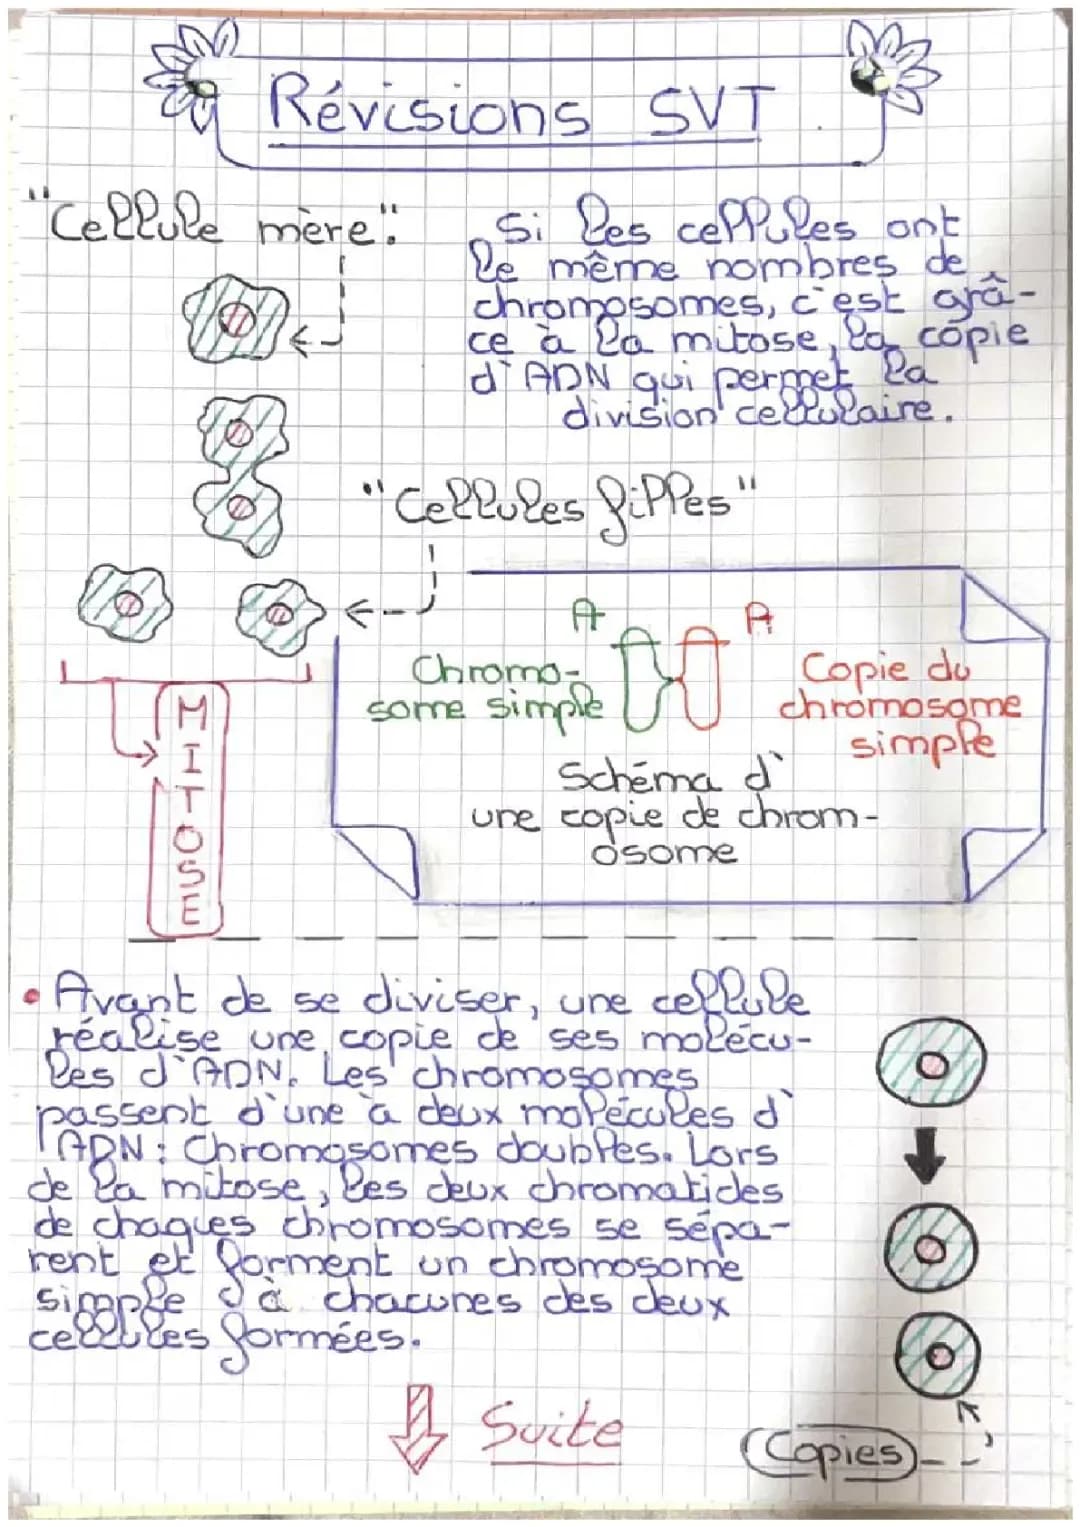 Révisions SVT
"Cellule mère":
Si les cellules ont
le même nombres de
chromosomes, c'est grâ-
ce à la mitose, la copie
d'ADN qui permet la
division cellulaire.
"Cellules filles"
A
A
Chromo-
some simple
Copie du
chromosome
simple
Schéma d'
une copie de chrom-
osome
MITOSE
• Avant de se diviser, une cellule
réalise une copie de ses molécu-
les d'ADN. Les chromosomes
passent d'une à deux molécules d'
ADN : Chromosomes doubles. Lors
de la mitose, les deux chromatides
de chaques chromosomes se sépa-
rent et forment un chromosome
simple à chacunes des deux
cellules formées.
Suite
Copies